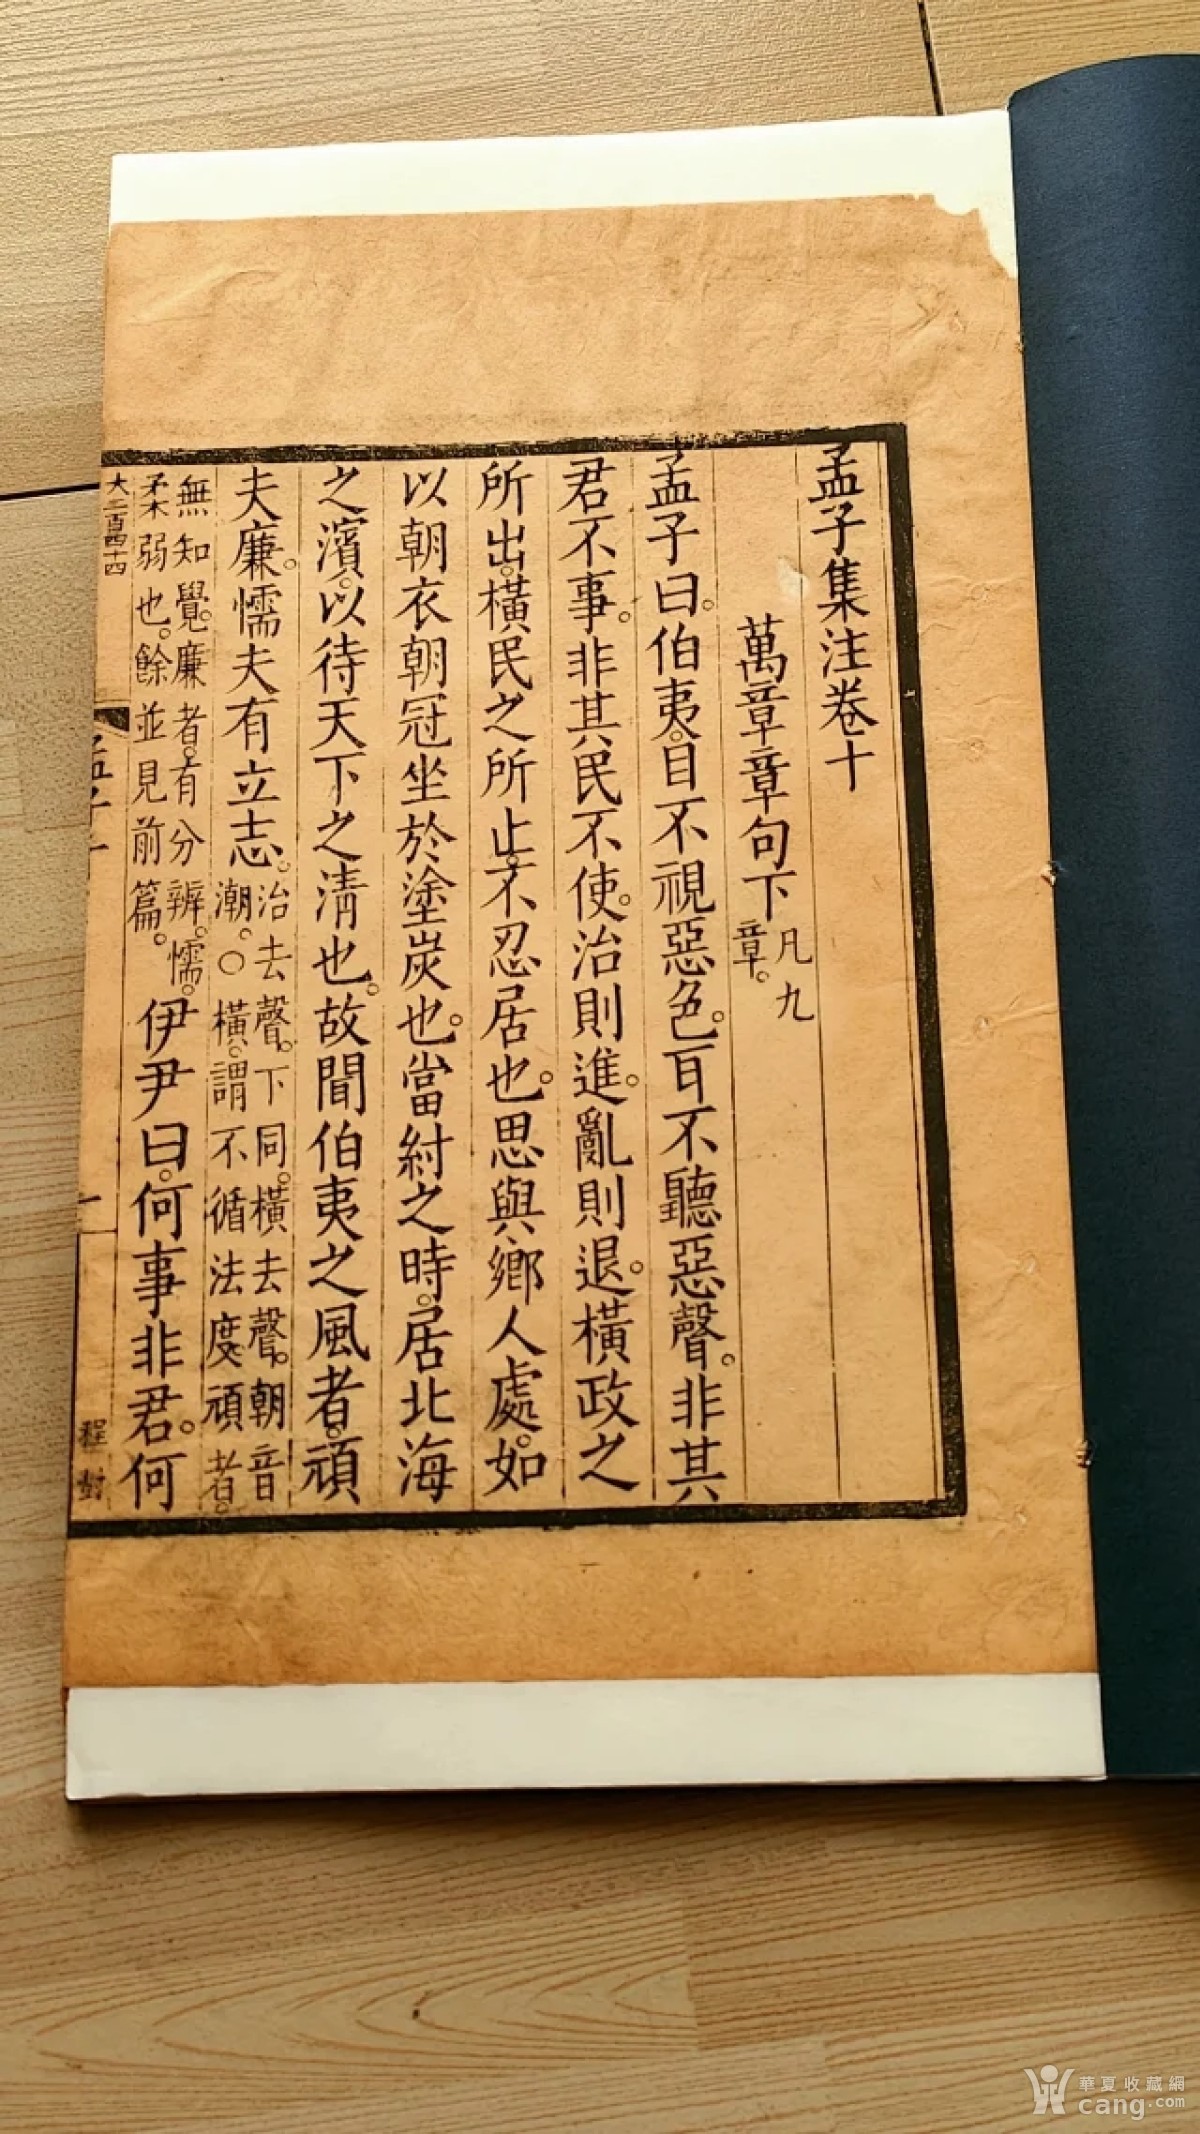 孟子集注卷十
萬章章句下凡九章。
孟子曰。伯夷。目不視惡色。耳不聽惡聲。非其
君不事。非其民不使。治則進。亂則退。橫政之
所出。橫民之所止。不忍居也。思與鄉人處。如
以朝衣朝冠坐於塗炭也。當紂之時。居北海
之濱。以待天下之清也。故聞伯夷之風者。頑
夫廉。懦夫有立志。治去聲。下同。橫去聲。朝音
潮。○橫。謂不循法度。頑者。
無知覺。廉者。有分辨。懦。
柔弱也。餘並見前篇。伊尹曰。何事非君。何
大二百四十四
程
華夏收藏網
cang.com